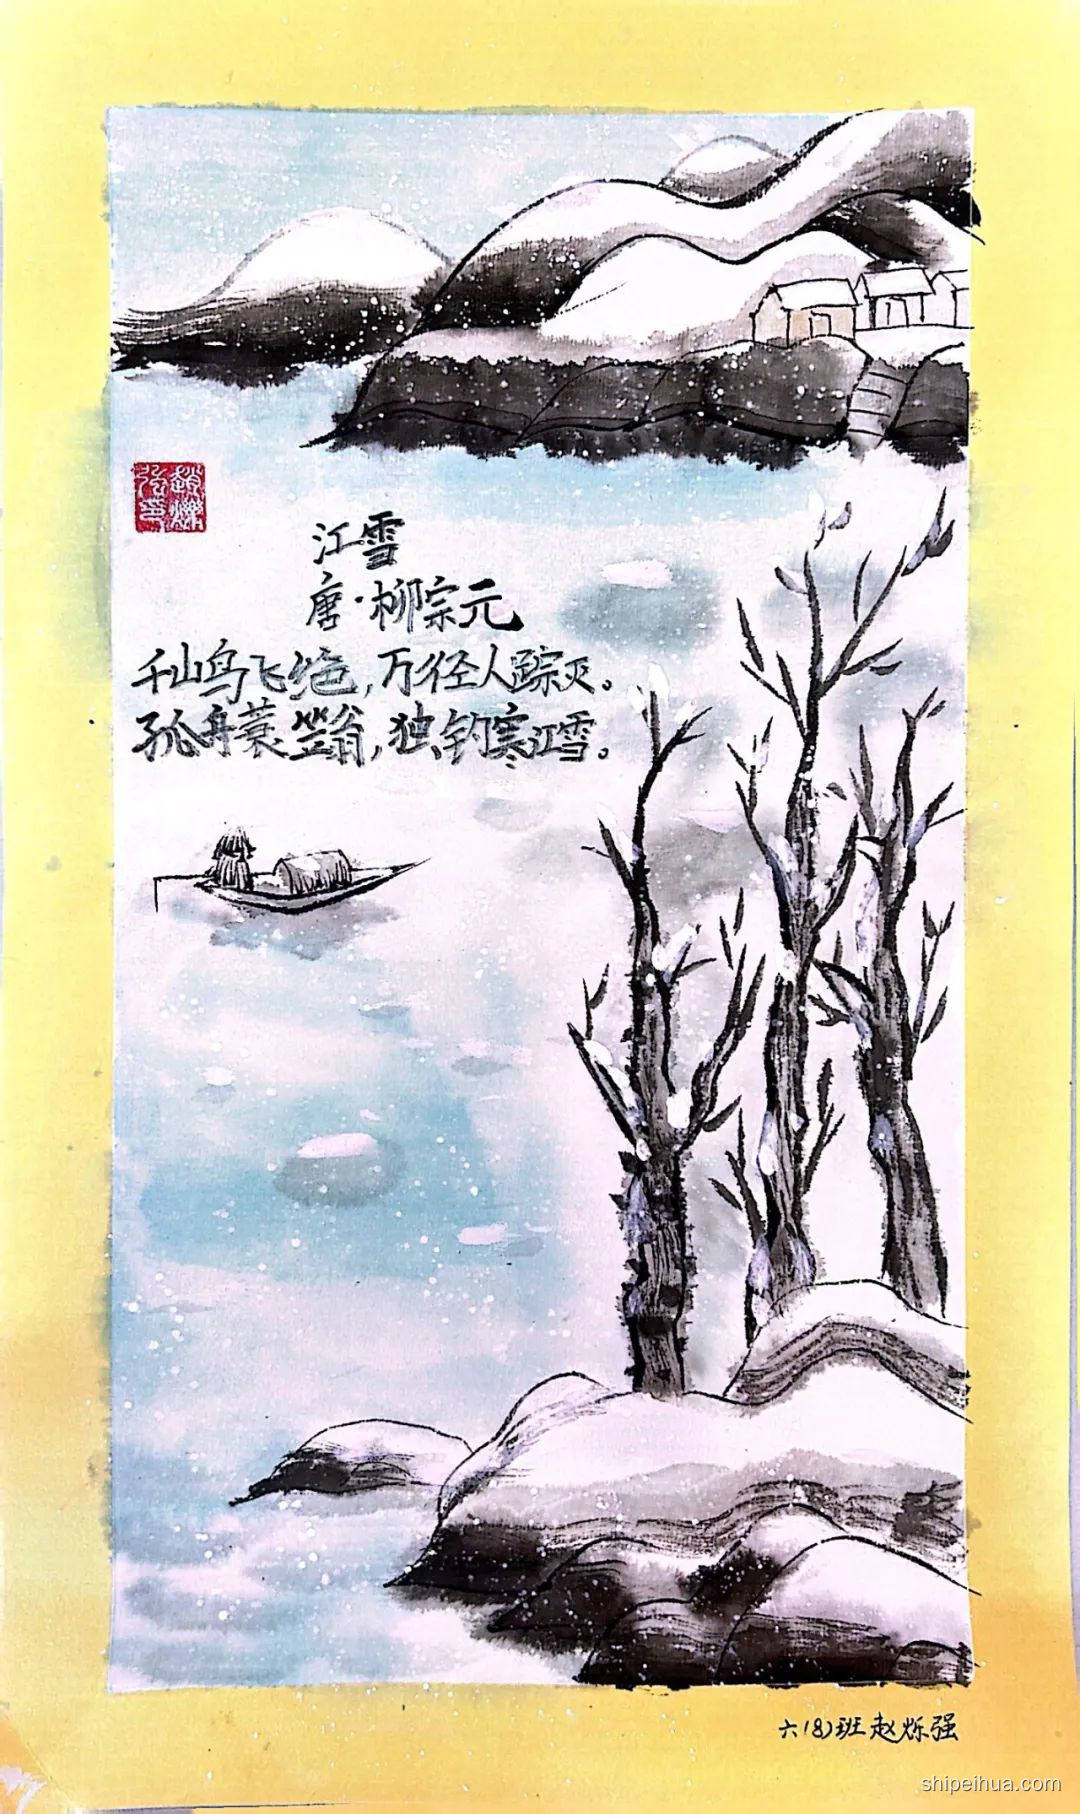 江雪
唐·柳宗元
千山鸟飞绝，万径人踪灭。
孤舟蓑笠翁，独钓寒江雪。
六(8)班赵烁强
shipeihua.com